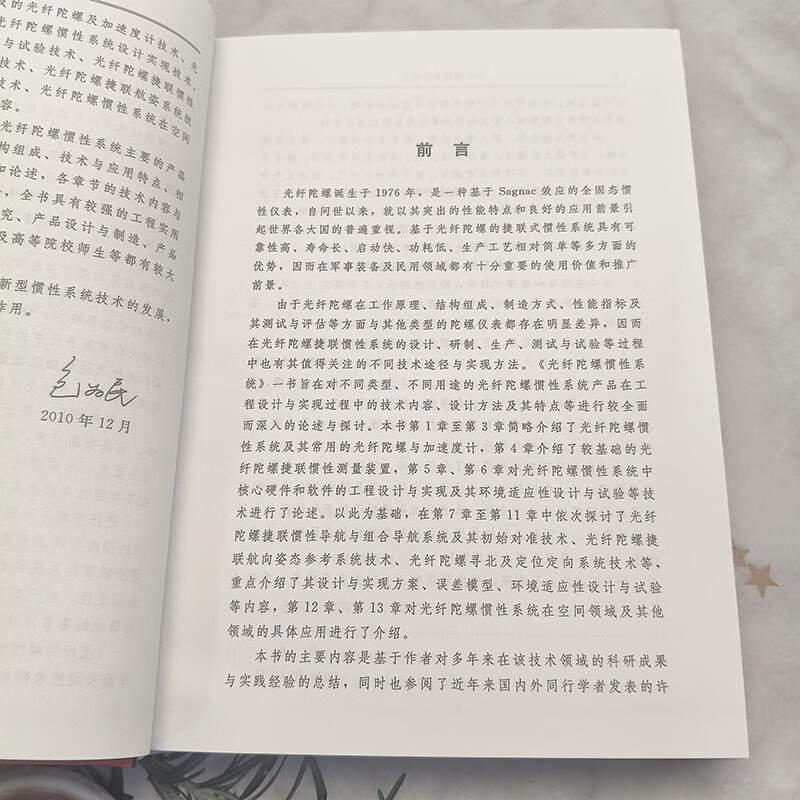 及的光纤陀螺及加速度计技术、光
纤陀螺惯性系统设计实现技术、
与试验技术、光纤陀螺捷联惯性
技术、光纤陀螺捷联航姿系统技
术、光纤陀螺惯性系统在空间
容。
光纤陀螺惯性系统主要的产品
构组成、技术与应用特点、相
和论述，各章节的技术内容与
，全书具有较强的工程实用
究、产品设计与制造、产品
及高等院校师生等都有较大
新型惯性系统技术的发展，
作用。
包为民
2010年12月
前言
光纤陀螺诞生于1976年，是一种基于Sagnac效应的全固态惯
性仪表，自问世以来，就以其突出的性能特点和良好的应用前景引
起世界各大国的普遍重视。基于光纤陀螺的捷联式惯性系统具有可
靠性高、寿命长、启动快、功耗低、生产工艺相对简单等多方面的
优势，因而在军事装备及民用领域都有十分重要的使用价值和推广
前景。
由于光纤陀螺在工作原理、结构组成、制造方式、性能指标及
其测试与评估等方面与其他类型的陀螺仪表都存在明显差异，因而
在光纤陀螺捷联惯性系统的设计、研制、生产、测试与试验等过程
中也有其值得关注的不同技术途径与实现方法。《光纤陀螺惯性系
统》一书旨在对不同类型、不同用途的光纤陀螺惯性系统产品在工
程设计与实现过程中的技术内容、设计方法及其特点等进行较全面
而深入的论述与探讨。本书第1章至第3章简略介绍了光纤陀螺惯
性系统及其常用的光纤陀螺与加速度计，第4章介绍了较基础的光
纤陀螺捷联惯性测量装置，第5章、第6章对光纤陀螺惯性系统中
核心硬件和软件的工程设计与实现及其环境适应性设计与试验等技
术进行了论述。以此为基础，在第7章至第11章中依次探讨了光纤
陀螺捷联惯性导航与组合导航系统及其初始对准技术、光纤陀螺捷
联航向姿态参考系统技术、光纤陀螺寻北及定位定向系统技术等，
重点介绍了其设计与实现方案、误差模型、环境适应性设计与试验
等内容，第12章、第13章对光纤陀螺惯性系统在空间领域及其他
领域的具体应用进行了介绍。
本书的主要内容是基于作者对多年来在该技术领域的科研成果
与实践经验的总结，同时也参阅了近年来国内外同行学者发表的许